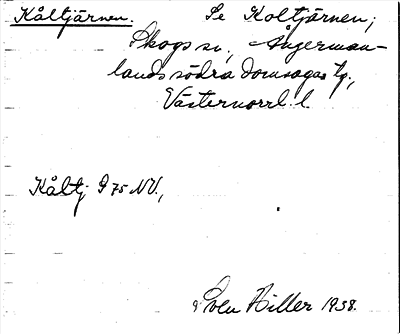 Kåltjärnen. Se Koltjärnen;
Skogs sn, Ångerman-
lands södra domsagas tg.,
Västernorrl. l.
Kåltj. 975 NV.,
Sven Hiller 1938.